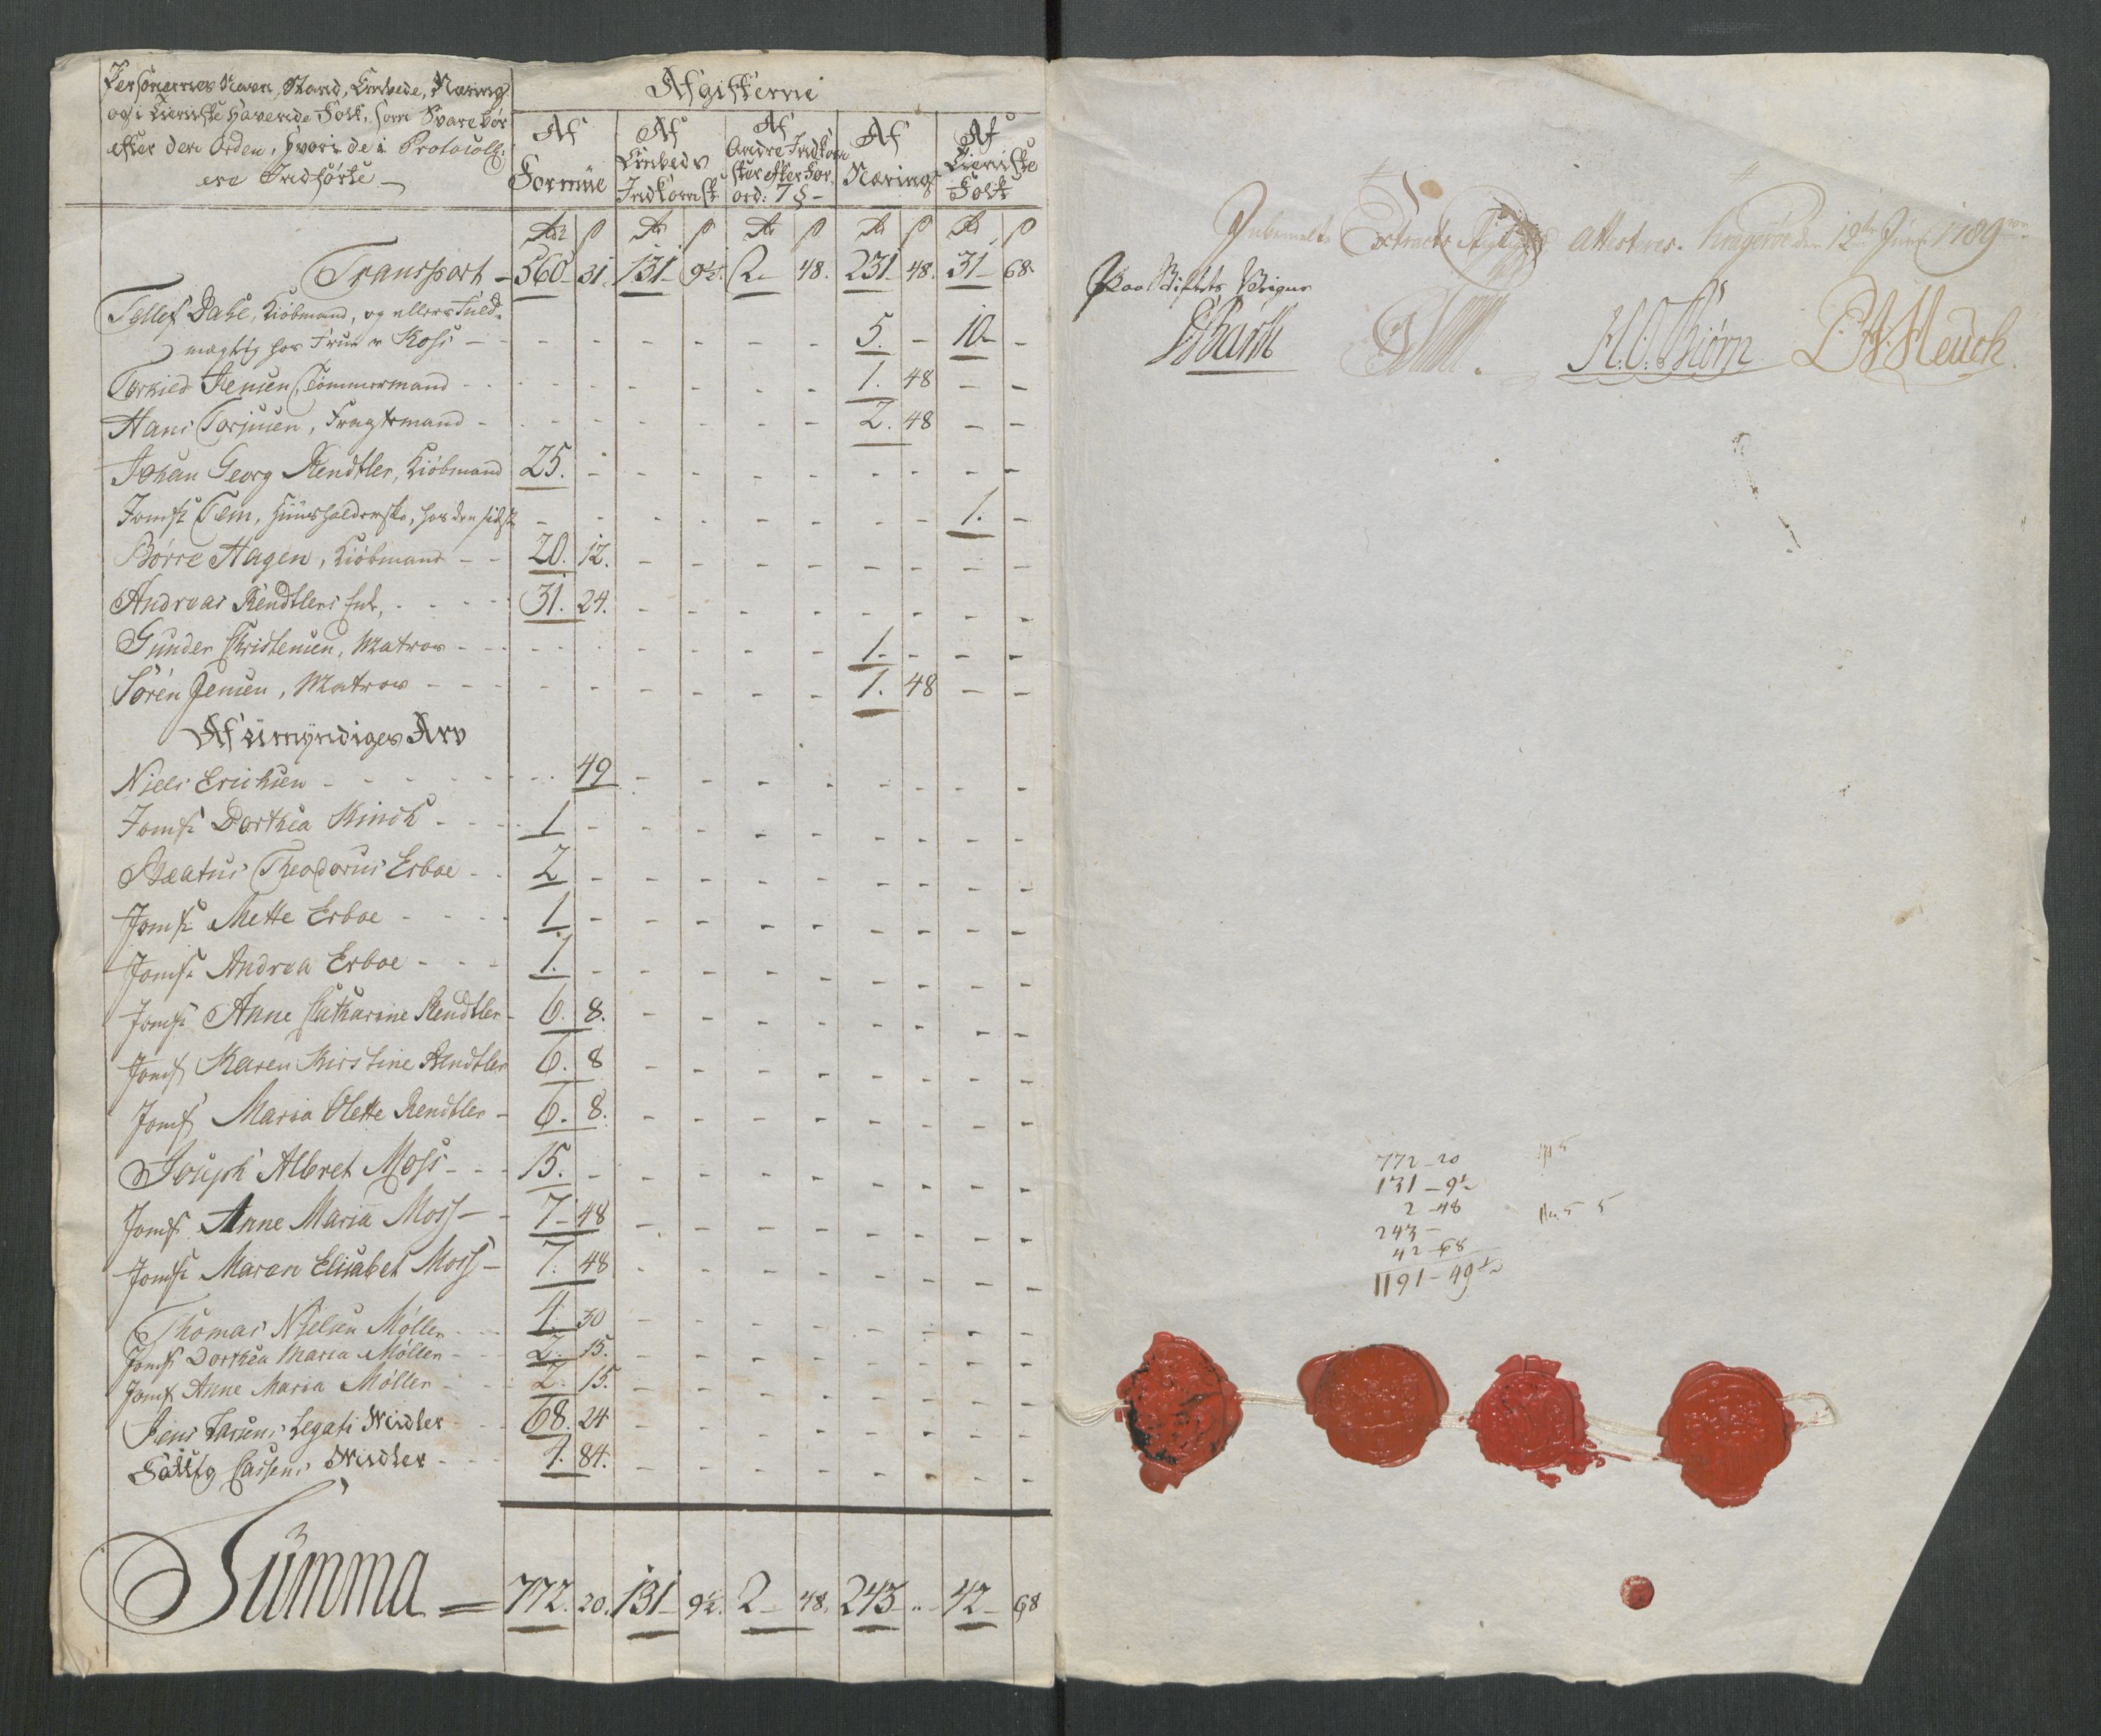 Personernes Navn, Stand, Embede, Næring
og i Tieniste havende Folk, som Svare bør
efter den Orden, hvori de i Protocoll:
ere Indførte —
Afgifterne
Af Formüe
Af Embeds Indkomst
Af Andre Indkomster efter Forord: 7 § —
Af Nærings
Af Tieniste Folk
Rdr ß Rd ß Rd ß Rd ß Rd ß
Transport — 560 — 31. 131 — 9½. 2 — 48. 231 — 48. 31 — 68.
Tellef Dahl, Kiöbmand, og ellers Fuld-
mægtig hos Frue v Koss — 5. — 10 —
Torkild Jensen, Tömmermand 1. 48
Hans Torjusen, Fragtemand 2. 48
Johan Georg Rendtler, Kiöbmand 25.
Jomfr Tem, Huusholderske, hos den sidste 1.
Börre Hagen, Kiöbmand 20. 12.
Andreas Rendtlers Enke 31. 24.
Gunder Christensen, Matros 1.
Sören Jensen, Matros 1. 48
Af Umyndiges Arv
Niels Erichsen 49
Jomfr Dorthea Kinch 1
Beatus Theodorus Erboe 2
Jomfr Mette Erboe 1
Jomfr Andrea Erboe 1.
Jomfr Anne Catharine Rendtler 6. 8.
Jomfr Karen Kirstine Rendtler 6. 8
Jomfr Maria Olette Rendtler 6. 8.
Joseph Albret Moss 15.
Jomfr Anne Maria Moss 7 — 48
Jomfr Maren Elisabet Moss 7. 48
Thomas Nielsen Möller 4. 30
Jomfr Dorthea Maria Möller 2. 15.
Jomfr Anne Maria Möller 2. 15.
Jens Larsens Legats Midler 68. 24
Fattig Cassens Midler 4. 84.
Summa = 772. 20. 131 — 9½. 2 — 48. 243 — „ 42 — 68
Indbemelte Extracts Rigtighed Attesteres. Kragerøe den 12te Junj 1789
Paa Stiftets Veigne
Barth H. O. Biörn Heuch
772 — 20
131 — 9½
2 — 48
243 —
42 — 68
1191 — 49½